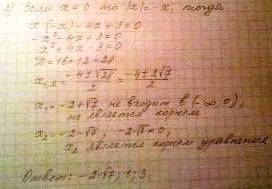 2) Если x=0 то |x|=-x, тогда
x·(-x)-4x+3=0
-x²-4x+3=0
x²+4x-3=0
D=16+12=28
x₁,₂ = (-4±√28)/2 = (-4±2√7)/2
x₁=-2+√7 не входит в (-∞;0),
не является корнем
x₂=-2-√7, -2-√7<0,
x₂ является корнем уравнения
Ответ: -2-√7; 1; 3.